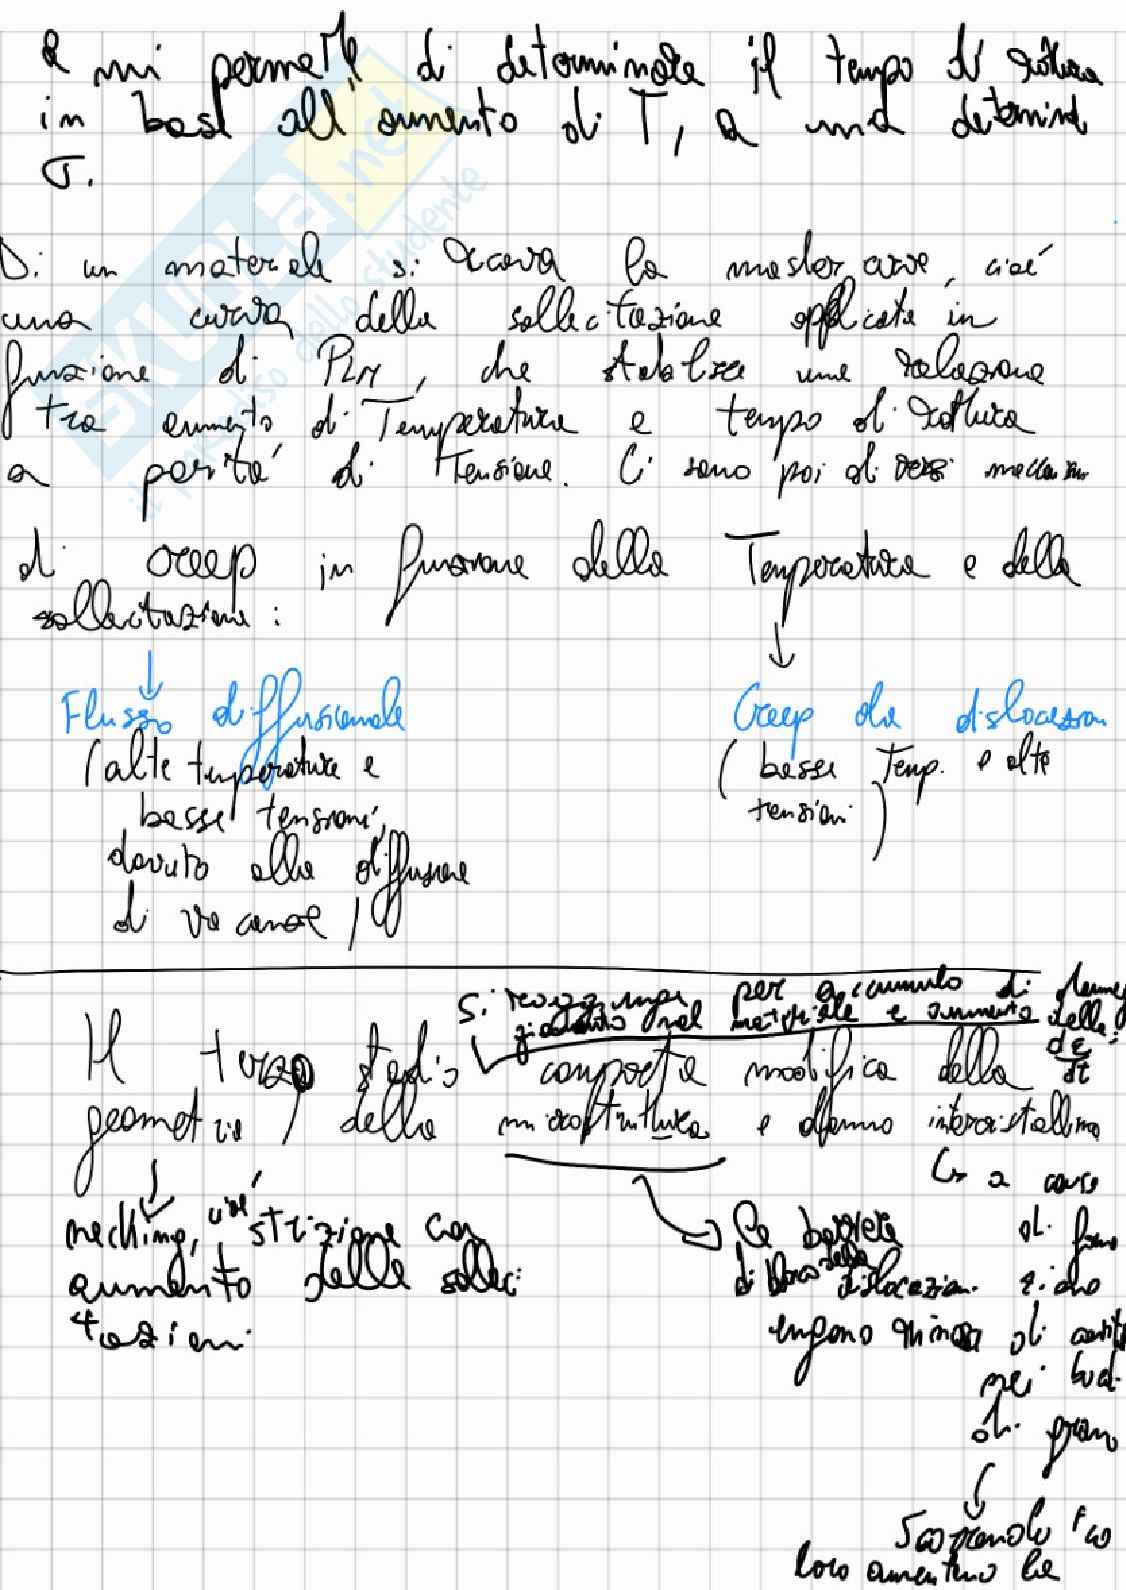 e mi permette di determinare il tempo di rottura
in base all'aumento di T, a una determinat
σ.
Di un materiale si ricava la master curve, cioè
una curva della sollecitazione applicata in
funzione di PLM, che stabilisce una relazione
tra aumento di Temperatura e tempo di rottura
a parità di tensione. Ci sono poi diversi
di creep in funzione della Temperatura e della
sollecitazione:
Flusso diffusionale
(alte temperature e
basse tensioni,
dovuto alla diffusione
di vacanze)
Creep da dislocazion
(basse Temp. e alte
tensioni)
Si raggiunge per accumulo di
nel materiale e aumento della
dε/dt
Il terzo stadio comporta modifica della
geometria, della microstruttura e danno intercristallino
↳ a causa
necking, cioè strizione con
aumento delle solleci
tazioni
Le barriere
di blocco delle dislocazioni
di form
azione
di cavità
nei bordi
di grano
Scorrendo
loro aumentano le
SKUOLA.net
il paradiso dello studente